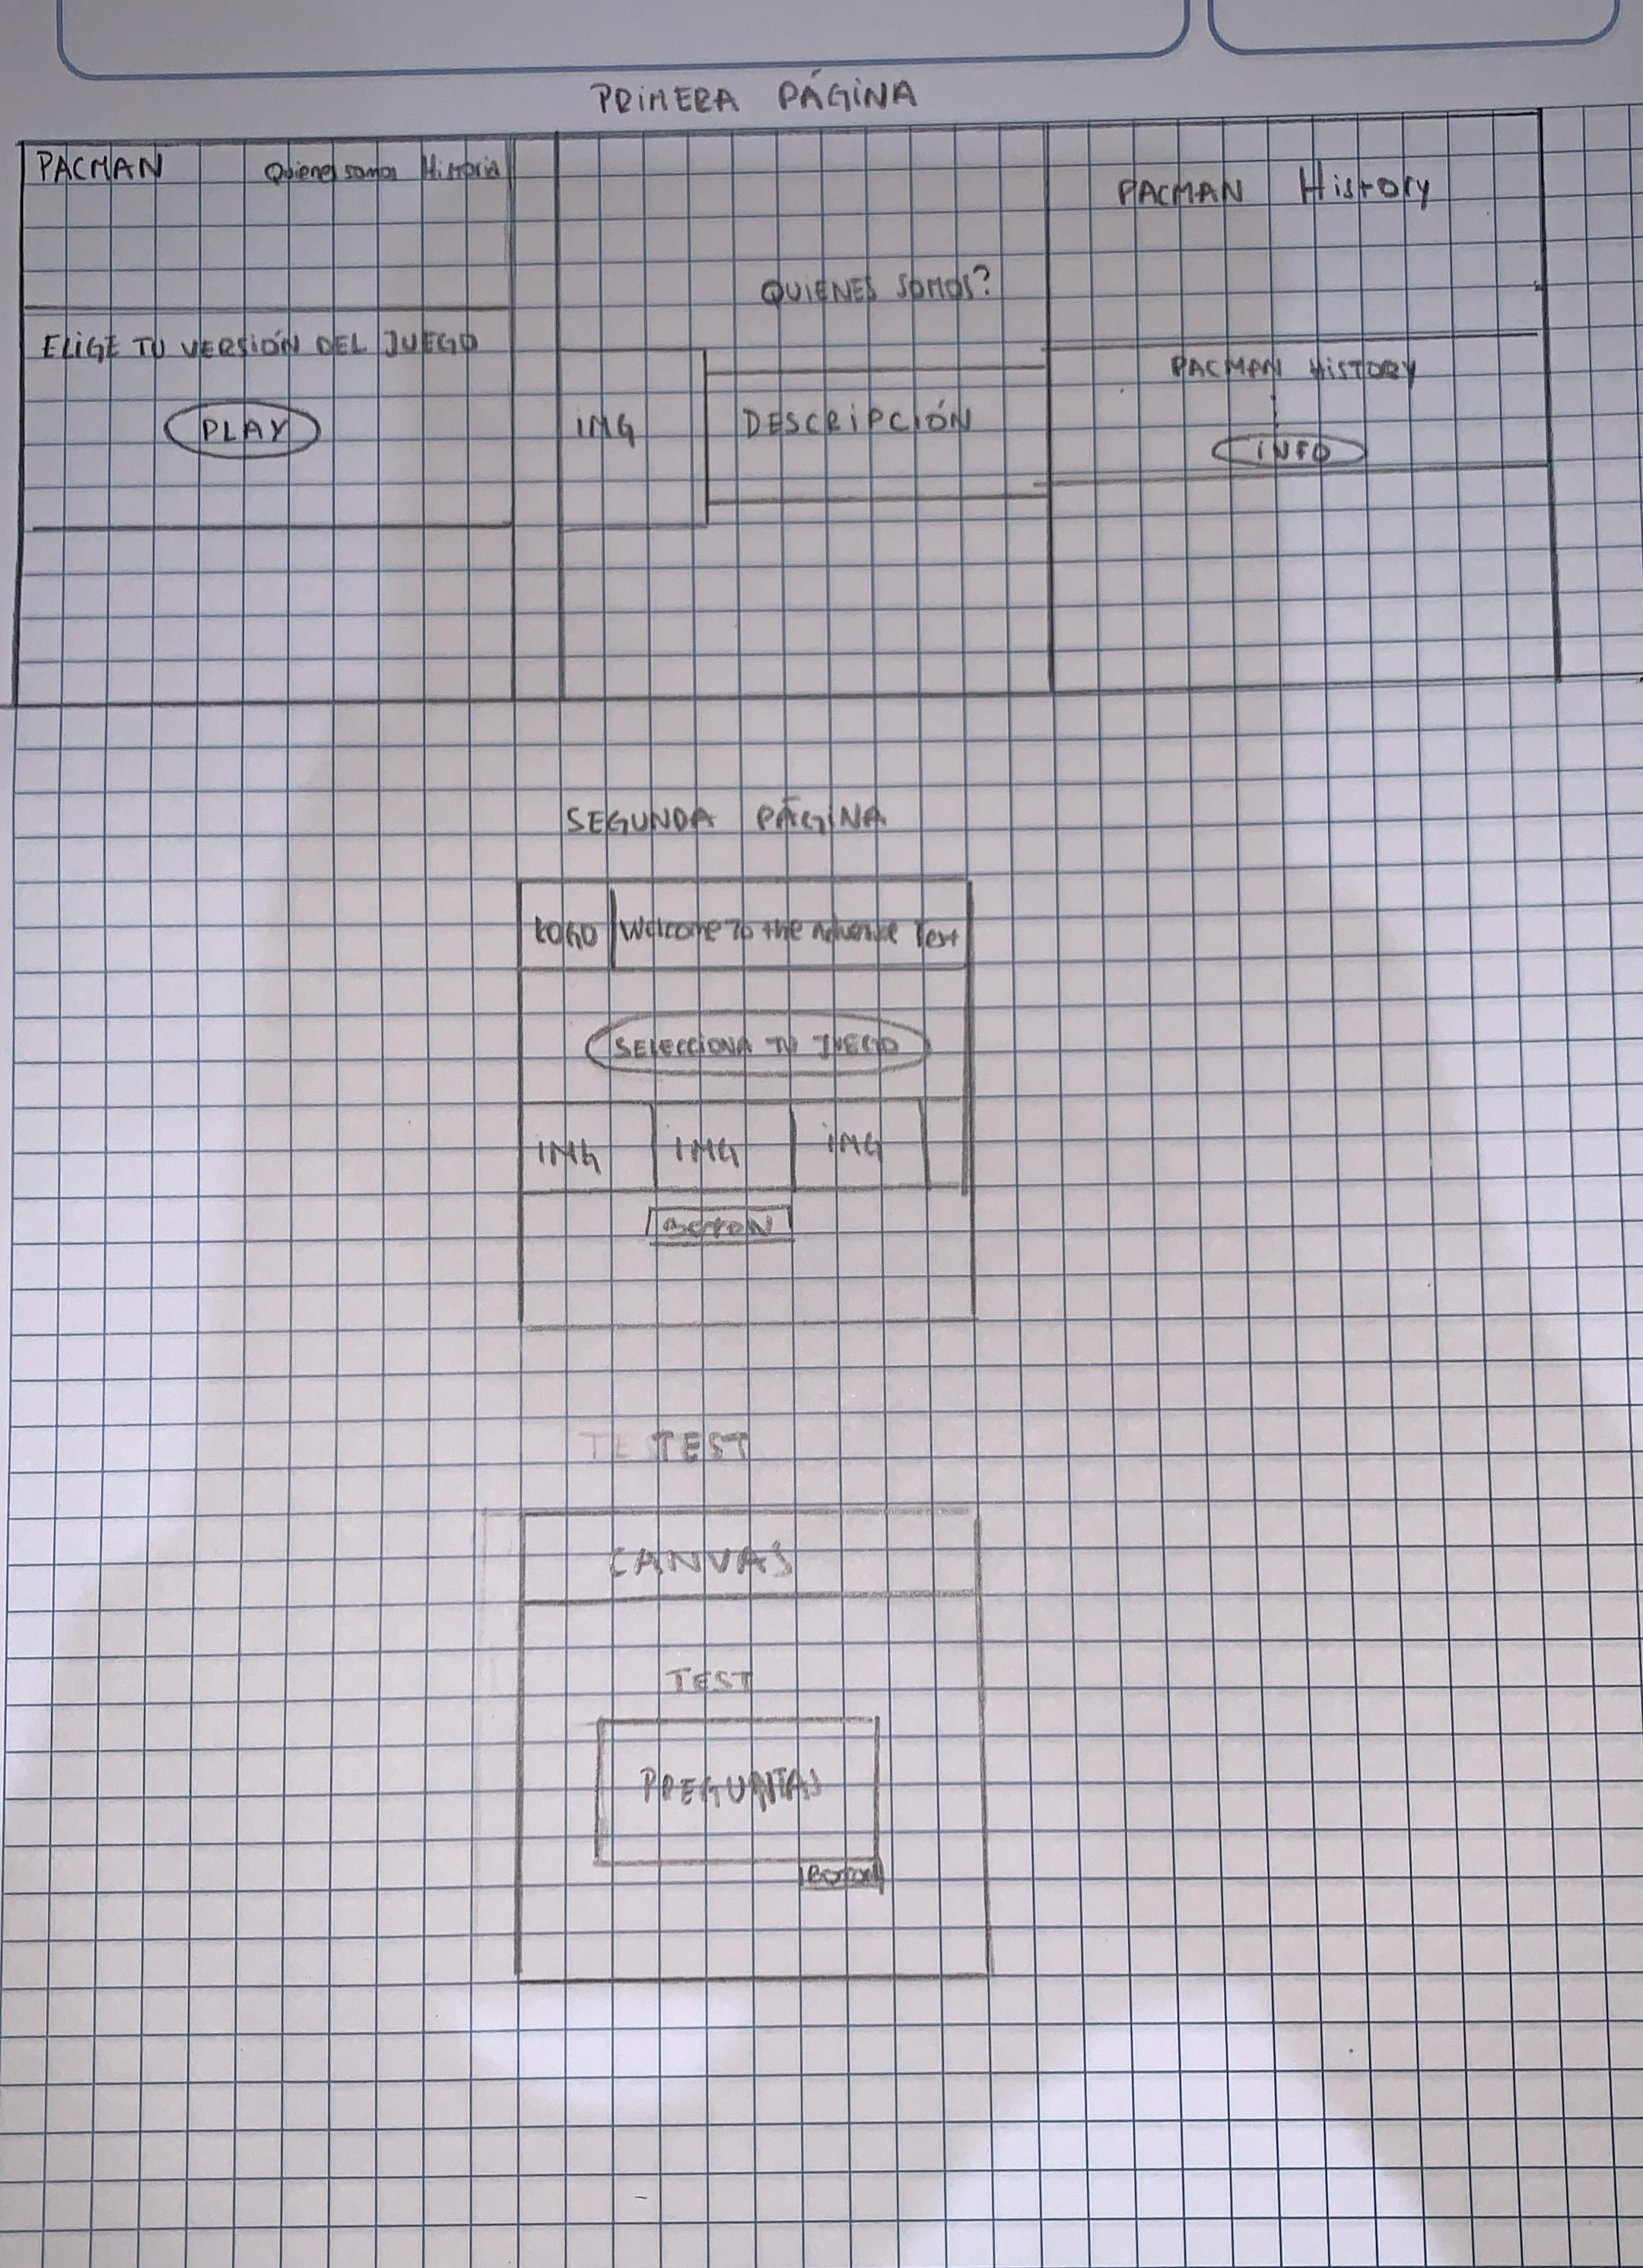 PRIMERA PÁGINA
PACMAN Quienes somos Historia
ELIGE TU VERSIÓN DEL JUEGO
PLAY
QUIENES SOMOS?
IMG DESCRIPCIÓN
PACMAN History
PACMAN HISTORY
INFO
SEGUNDA PÁGINA
LOGO Welcome To the Test
SELECCIONA TU JUEGO
IMG IMG IMG
BOTON
TE TEST
CANVAS
TEST
PREGUNTAS
BOTON